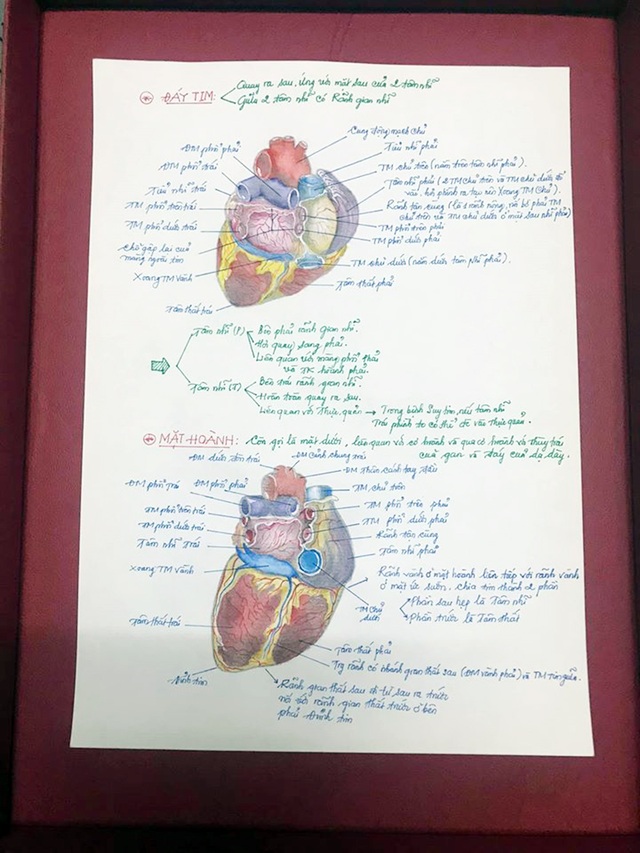 ĐÁY TIM:
Quay ra sau, ứng với mặt sau của 2 tâm nhĩ
Giữa 2 tâm nhĩ có Rãnh gian nhĩ
Cung động mạch chủ
ĐM phổi phải
Tiểu nhĩ phải
ĐM phổi trái
TM chủ trên (nằm trên tâm nhĩ phải).
Tiểu nhĩ trái
Tâm nhĩ phải (2 TM chủ trên và TM chủ dưới đổ
vào, hợp thành tạo nên Xoang TM Chủ).
TM phổi trên trái
Rãnh tận cùng (là 1 rãnh nông, nối bờ phải TM
chủ trên và TM chủ dưới ở mặt sau nhĩ phải)
TM phổi dưới trái
TM phổi trên phải
TM phổi dưới phải
Chỗ gặp lại của
màng ngoài tim
TM chủ dưới (nằm dưới tâm Nhĩ phải).
Xoang TM Vành
Tâm thất phải
Tâm thất trái
Tâm nhĩ (P)
Bên phải rãnh gian nhĩ.
Hơi quay sang phải.
Liên quan với màng phổi phải
và TK hoành phải.
Tâm nhĩ (T)
Bên trái rãnh gian nhĩ.
Hoàn toàn quay ra sau.
Liên quan với Thực quản → Trong bệnh Suy tim, nếu tâm nhĩ
Trái phình to có thể đè vào Thực quản.
MẶT HOÀNH: Còn gọi là mặt dưới, liên quan với cơ hoành và qua cơ hoành với thùy trái
của gan và đáy của dạ dày.
ĐM dưới đòn trái
ĐM Cảnh chung trái
ĐM Thân cánh tay đầu
ĐM phổi Trái
ĐM phổi phải
TM chủ trên
TM phổi trên trái
TM phổi trên phải
TM phổi dưới trái
TM phổi dưới phải
Rãnh tận cùng
Tâm nhĩ Trái
Tâm nhĩ phải
Xoang TM vành
Rãnh vành ở mặt hoành liên tiếp với rãnh vành
ở mặt ức sườn, chia tim thành 2 phần
TM Chủ
dưới
Phần sau hẹp là Tâm nhĩ
Phần trước là Tâm thất
Tâm thất trái
Tâm thất phải
Trg rãnh có nhánh gian thất sau (ĐM vành phải) và TM Tim giữa.
Đỉnh tim
Rãnh gian thất sau đi từ sau ra trước
nối với rãnh gian thất trước ở bên
phải Đỉnh tim